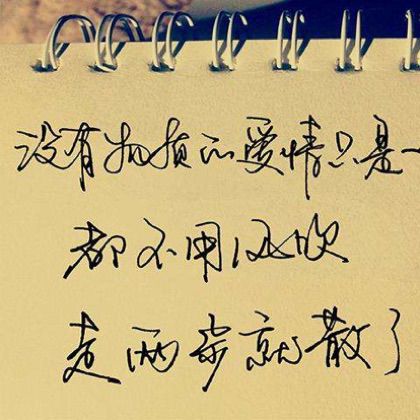 没有物质的爱情只是一
都不用风吹
走两步就散了